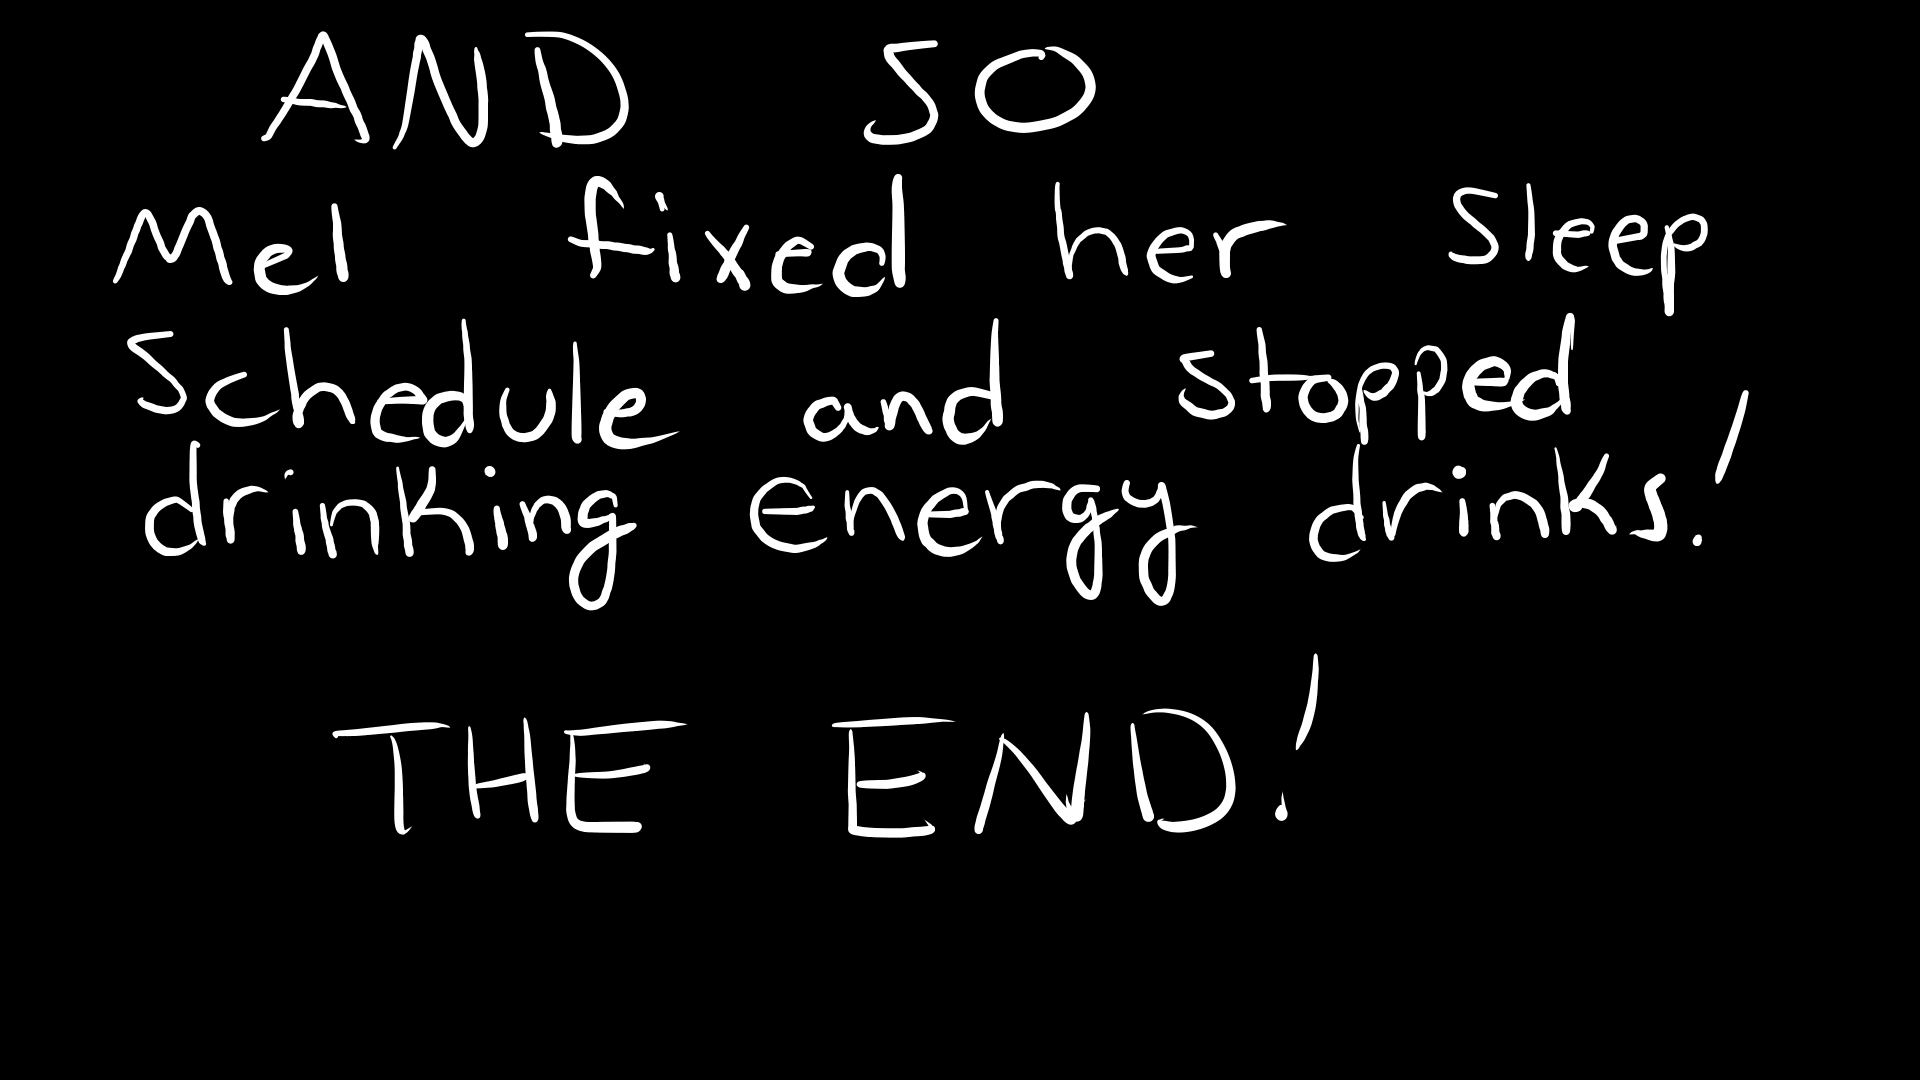 AND SO
Mel fixed her Sleep
Schedule and stopped
drinking energy drinks!
THE END!